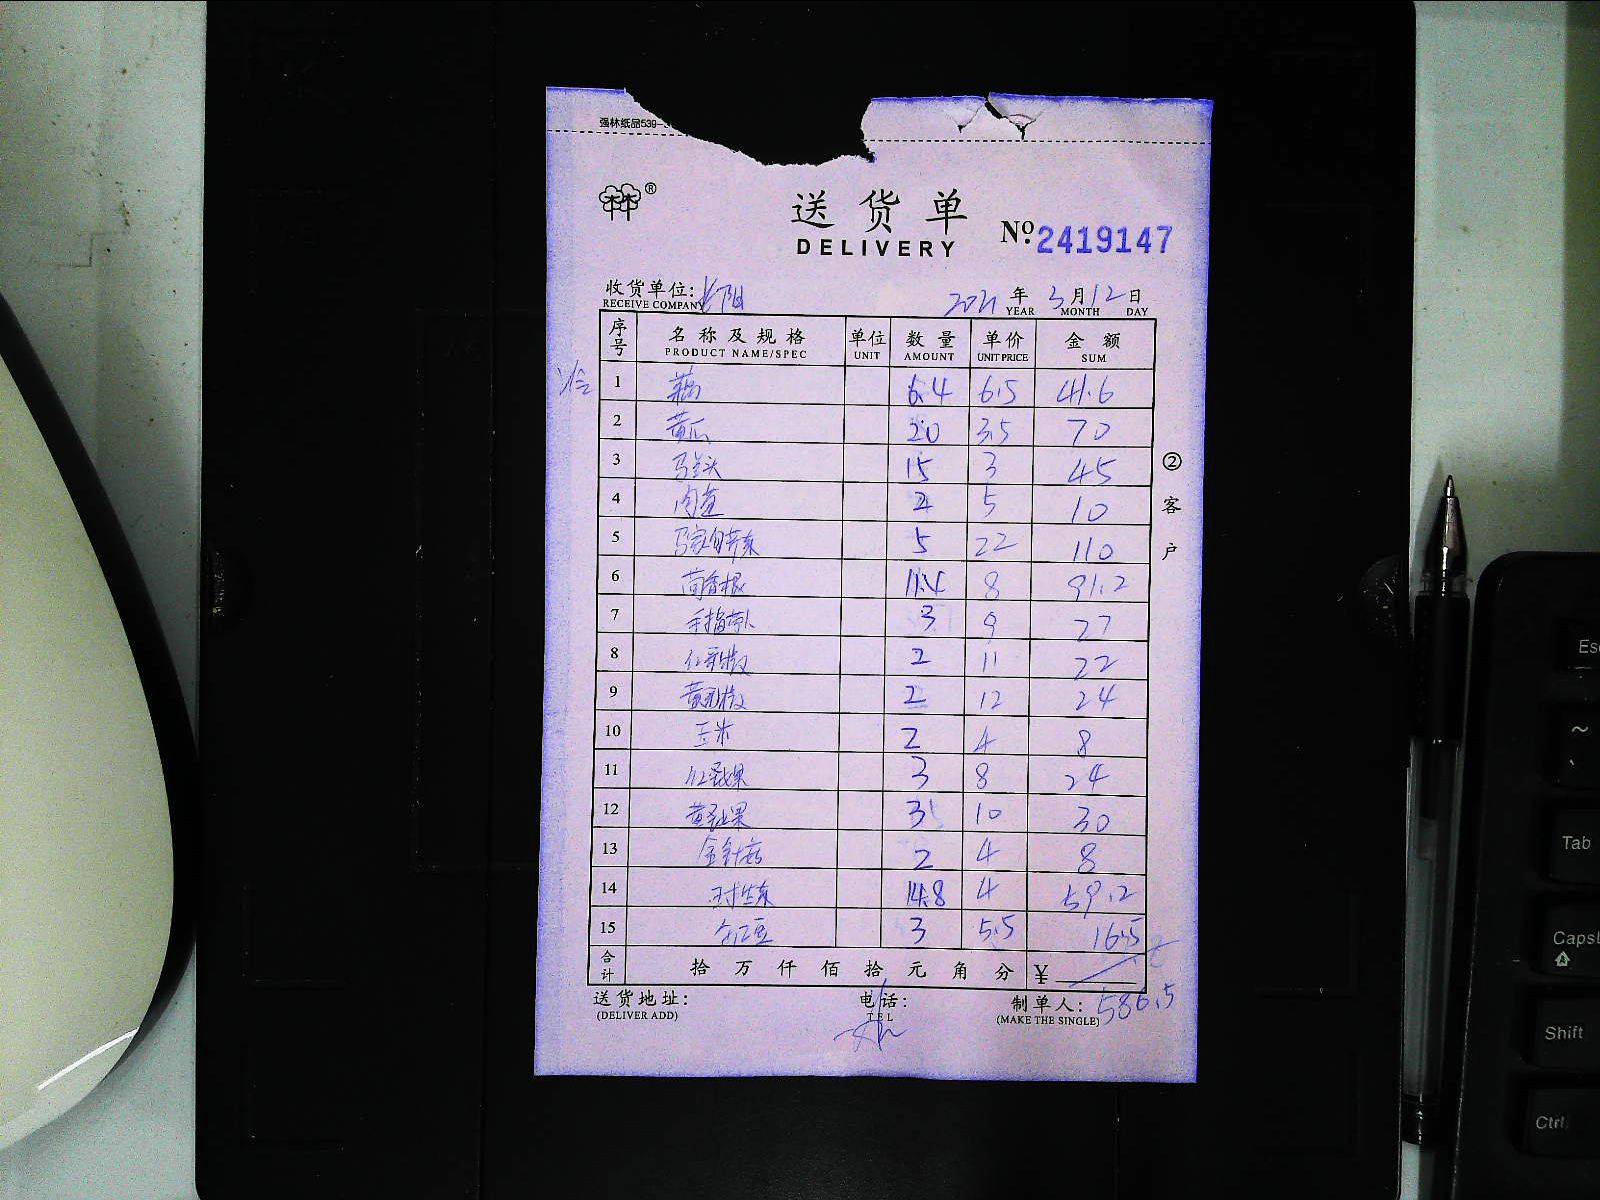 强林纸品539-3
®
送货单
DELIVERY
№ 2419147
收货单位: 长阳 2021 年 3 月 12 日
RECEIVE COMPANY YEAR MONTH DAY
序号 名称及规格 单位 数量 单价 金额
PRODUCT NAME/SPEC UNIT AMOUNT UNIT PRICE SUM
1 藕 6.4 6.5 41.6
2 黄瓜 20 3.5 70
3 15 3 45
4 2 5 10
5 5 22 110
6 茴香根 11.4 8 91.2
7 手指 3 9 27
8 红彩椒 2 11 22
9 黄彩椒 2 12 24
10 玉米 2 4 8
11 红 果 3 8 24
12 黄 果 3 10 30
13 金针菇 2 4 8
14 14.8 4 59.2
15 红豆 3 5.5 16.5
合计 拾 万 仟 佰 拾 元 角 分 ¥
②客户
送货地址: 电话: 制单人: 586.5
(DELIVER ADD) TEL (MAKE THE SINGLE)
Esc
~
Tab
Caps
Shift
Ctrl